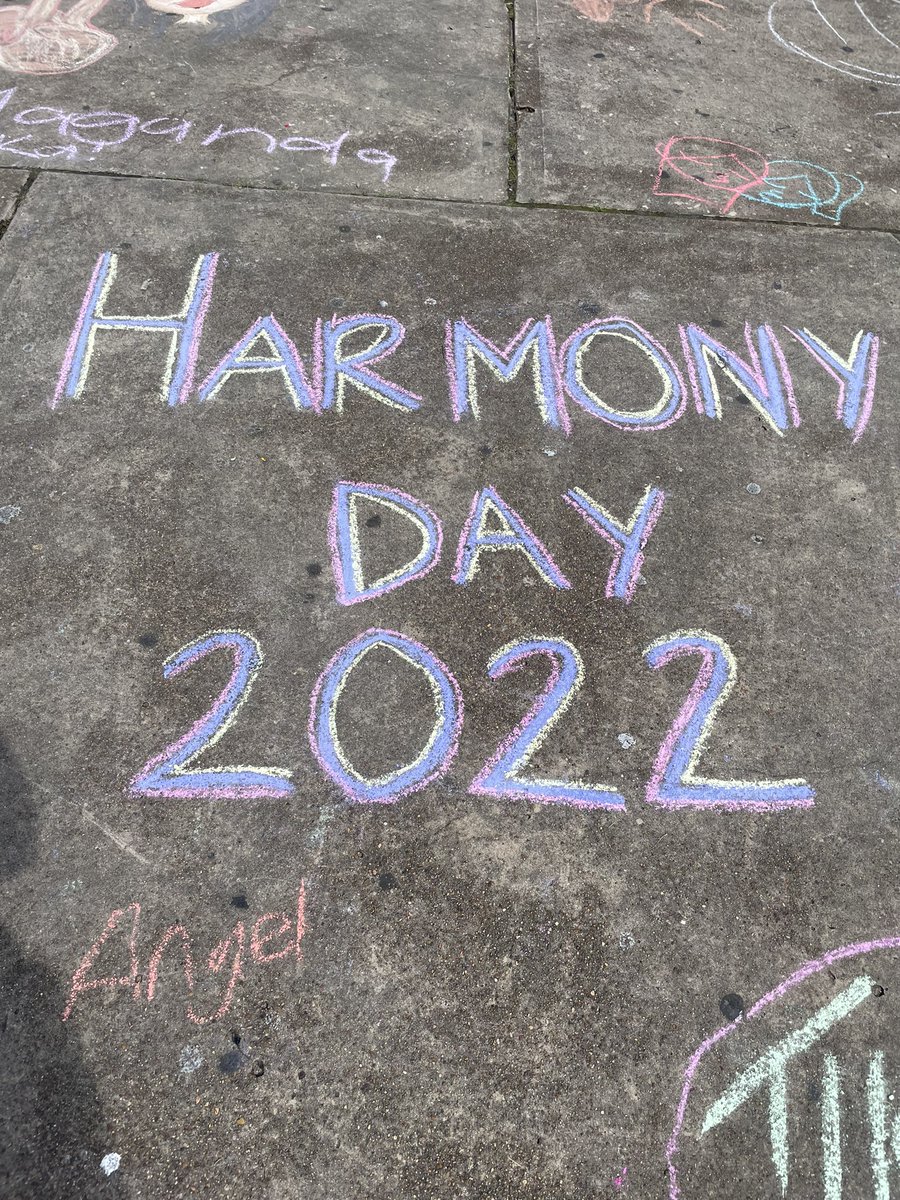 Maganda
HARMONY
DAY
2022
Angel